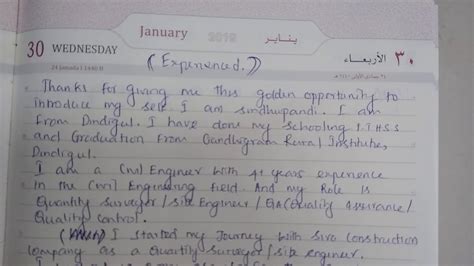 January 2019 يناير
30 WEDNESDAY الأربعاء ٣٠
(Experienced.)
Thanks for giving me this golden opportunity to
introduce my self. I am Sindhupandi. I am
From Dindigul. I have done my schooling I.T.H.S.S
and Graduation From Gandhigram Rural Institute,
Dindigul.
I am a Civil Engineer with 4+ years experience
in the Civil Engineering field. And my Role is
Quantity Surveyor / Site Engineer / QA (Quality Assurance /
Quality Control.
I started my Journey with Siva Construction
Company as a Quantity Surveyor / site engineer.